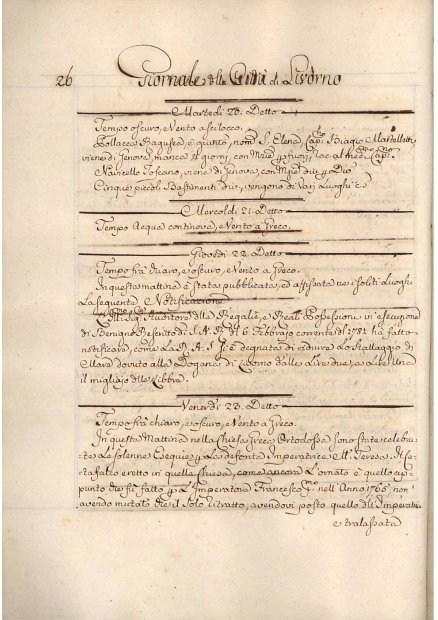 26 Giornale della Città di Livorno
Martedì 20. Detto
Tempo oscuro, e Vento a scilocco.
Pollacca Ragusea, è giunto, nom.ª S. Elena, Cap.no Biagio Martellotti,
viene di Genova, manca 11 giorni, con Mer.e
Navicello Toscano, viene di Genova, con Mer.e
Cinque piccoli Bastimenti div.i, vengono da Varj Luoghi
Mercoldì 21. Detto
Tempo Acqua continova, e Vento a Greco.
Giovedì 22. Detto
Tempo frà chiaro, e oscuro, e Vento a Greco.
In questa mattina è stata pubblicata, ed affissata ne i soliti Luoghi
La seguente Notificazione
Auditore delle Regalie, e Reali Possessioni in esecuzione
di Benigno Rescritto di S. A. R. del 6 Febbrajo corrente del 1781 hà fatto
notificare, come La R. A. S. si è degnata di ridurre Lo Stallaggio di
dovuto alla Dogana di Livorno dalle Lire due, a Lire Una
il migliajo delle Libbre.
Venerdì 23. Detto
Tempo frà chiaro, e oscuro, e Vento a Greco.
In questa Mattina nella Chiesa Greca Ortodossa sono state celebra-
te Le solenne Esequie p. La defonta Imperatrice M.ª Teresa. Il
fatto eretto in quella Chiesa, come ancora L'ornato è quello ap-
punto che fù fatto p. L'Imperatore Francesco P.mo nell'Anno 1765 non
avendo mutato che il Solo ritratto, avendovi posto quello dell'Imperatrice
e tralassata